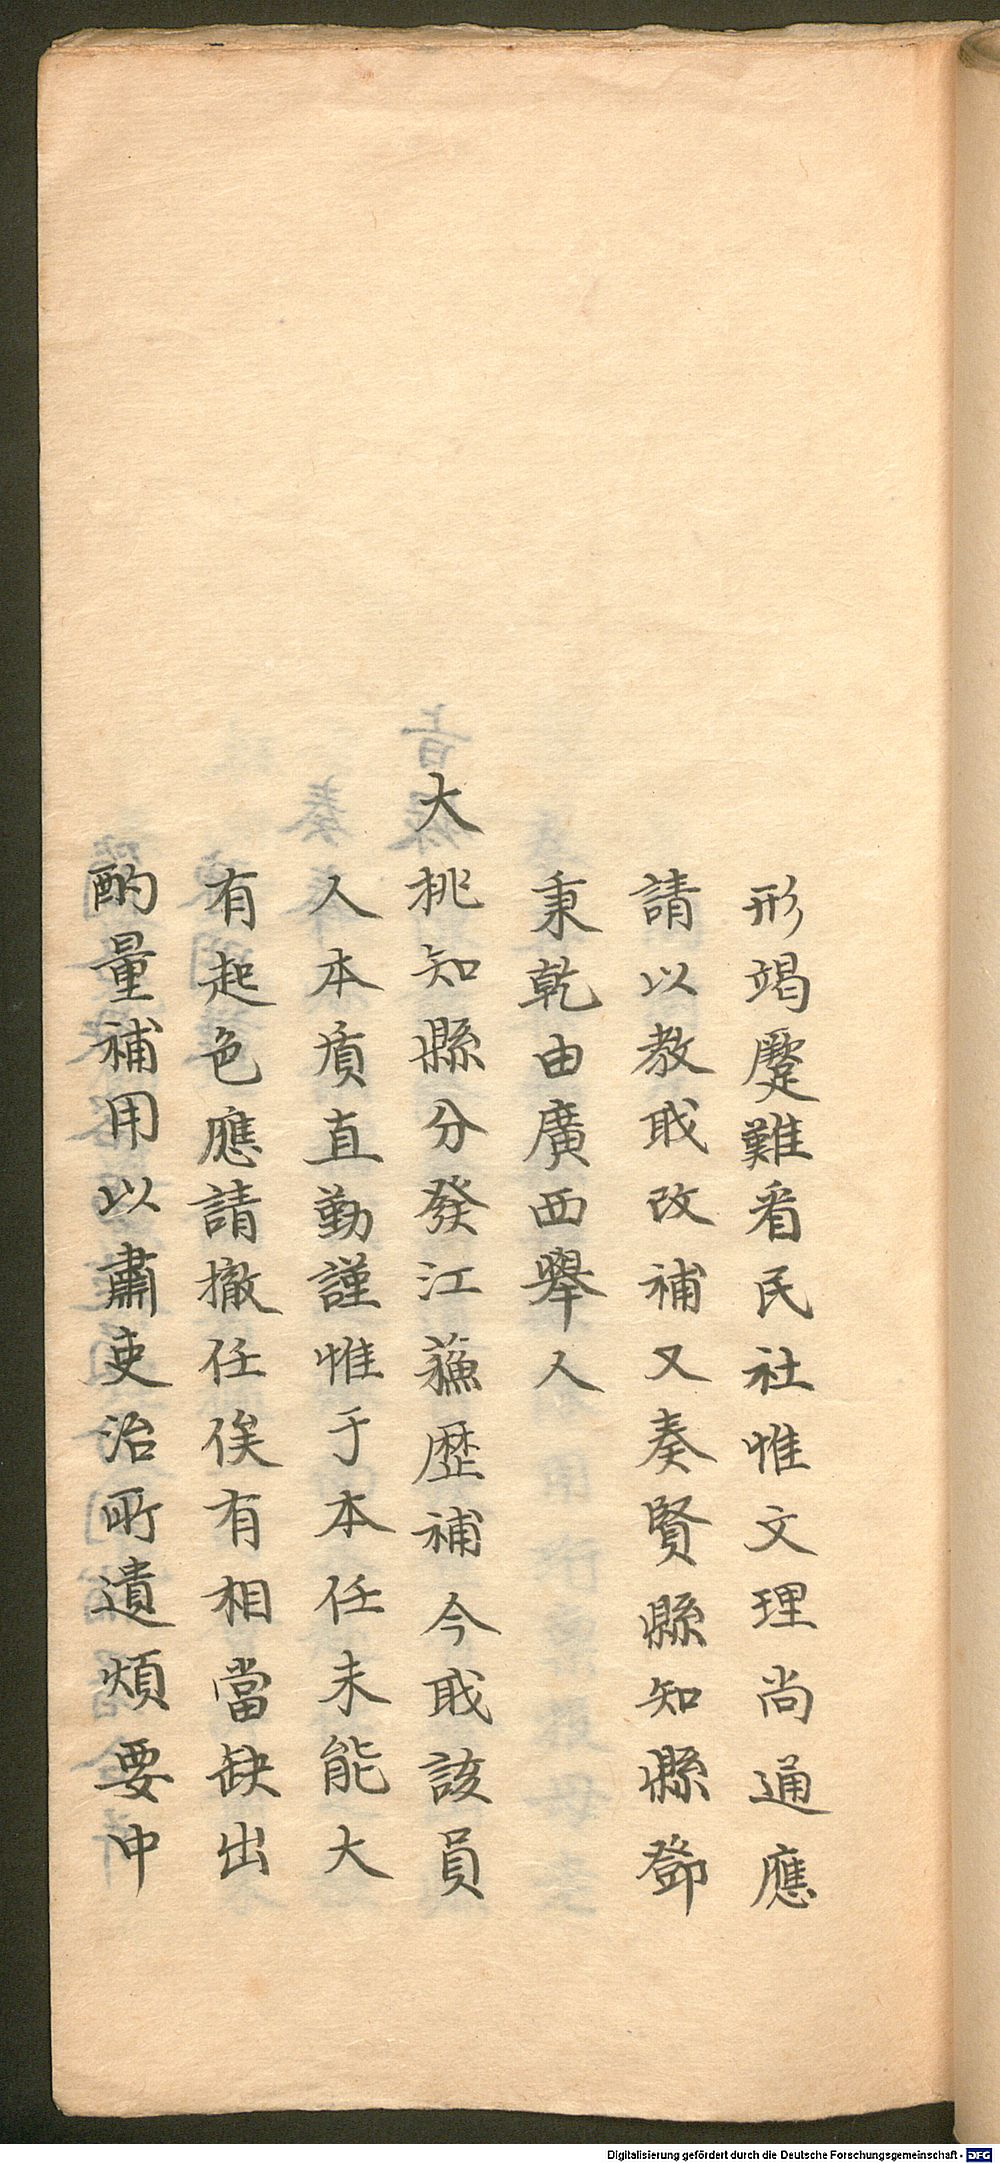 形竭蹷難看民社惟文理尚通應
請以教職改補又奏賢縣知縣鄧
秉乾由廣西舉人
大
桃知縣分發江蘓歷補今職該員
人本質直勤謹惟于本任未能大
有起色應請撤任俟有相當缺出
酌量補用以肅吏治所遺煩要中
Digitalisierung gefördert durch die Deutsche Forschungsgemeinschaft - DFG